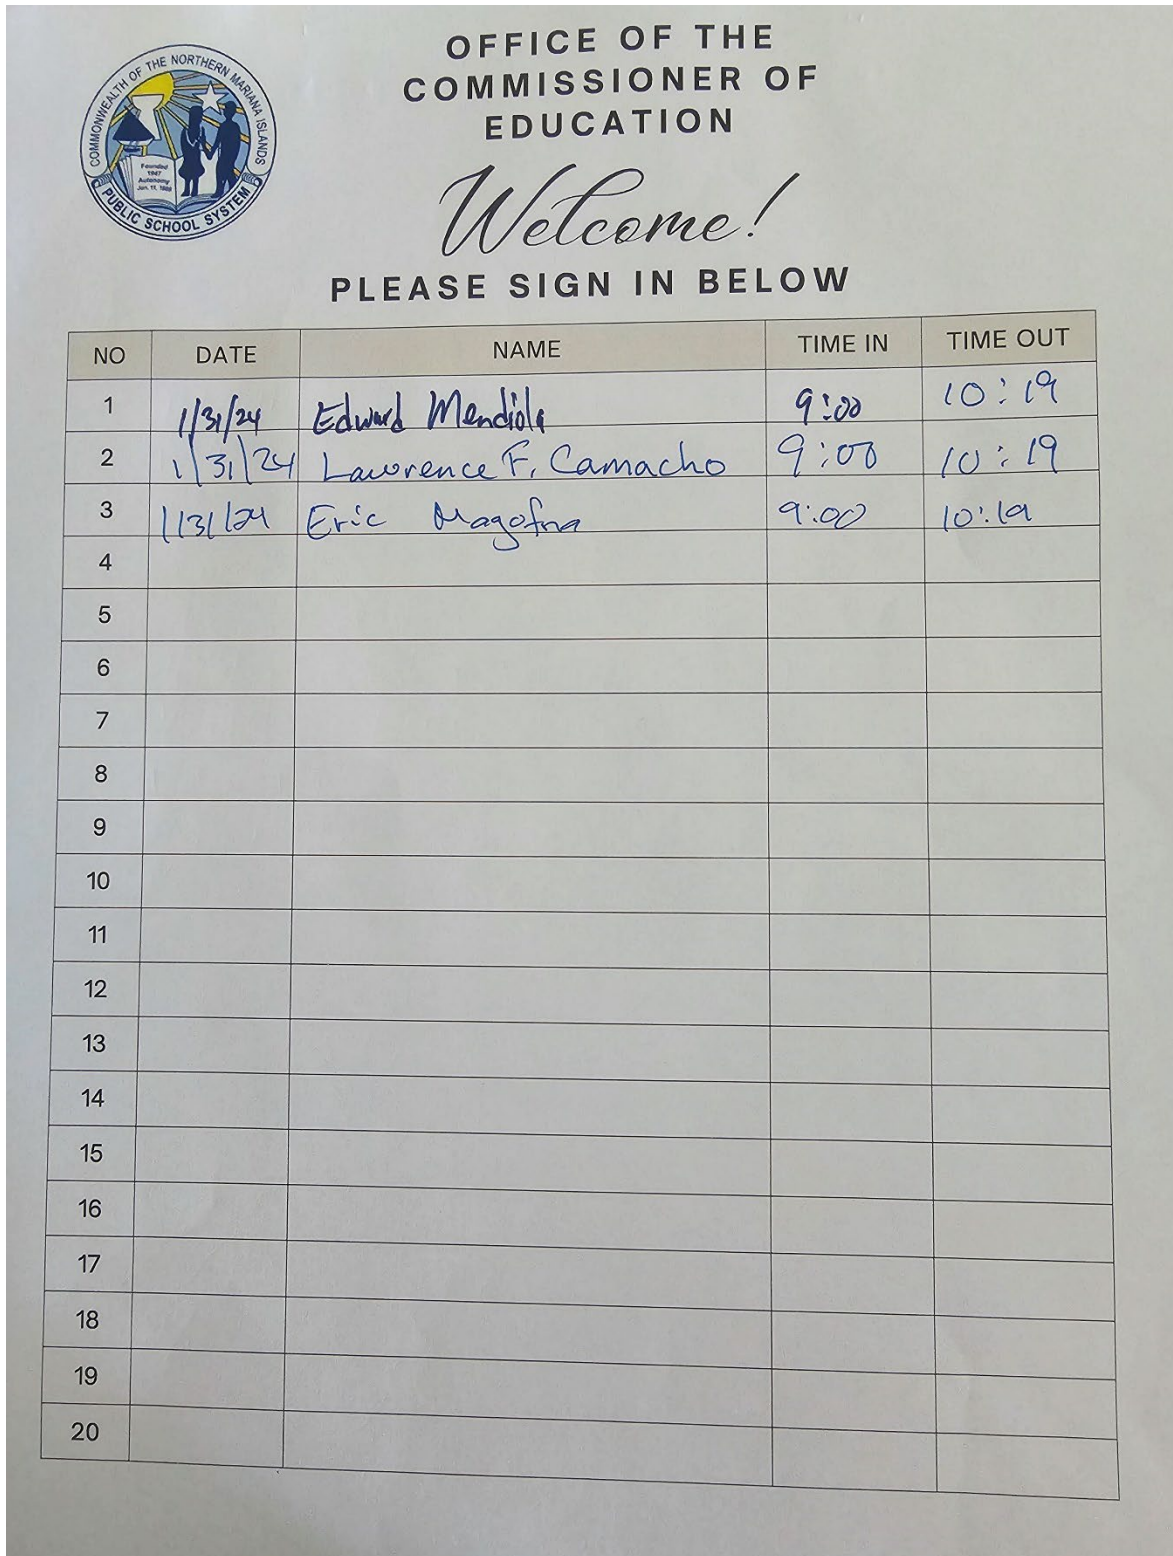 COMMONWEALTH OF THE NORTHERN MARIANA ISLANDS
Founded
1947
Autonomy
Jan. 11, 1988
PUBLIC SCHOOL SYSTEM
OFFICE OF THE
COMMISSIONER OF
EDUCATION
Welcome!
PLEASE SIGN IN BELOW
NO DATE NAME TIME IN TIME OUT
1 1/31/24 Edward Mendiola 9:00 10:19
2 1/31/24 Lawrence F. Camacho 9:00 10:19
3 1/31/24 Eric Magofna 9:00 10:19
4
5
6
7
8
9
10
11
12
13
14
15
16
17
18
19
20